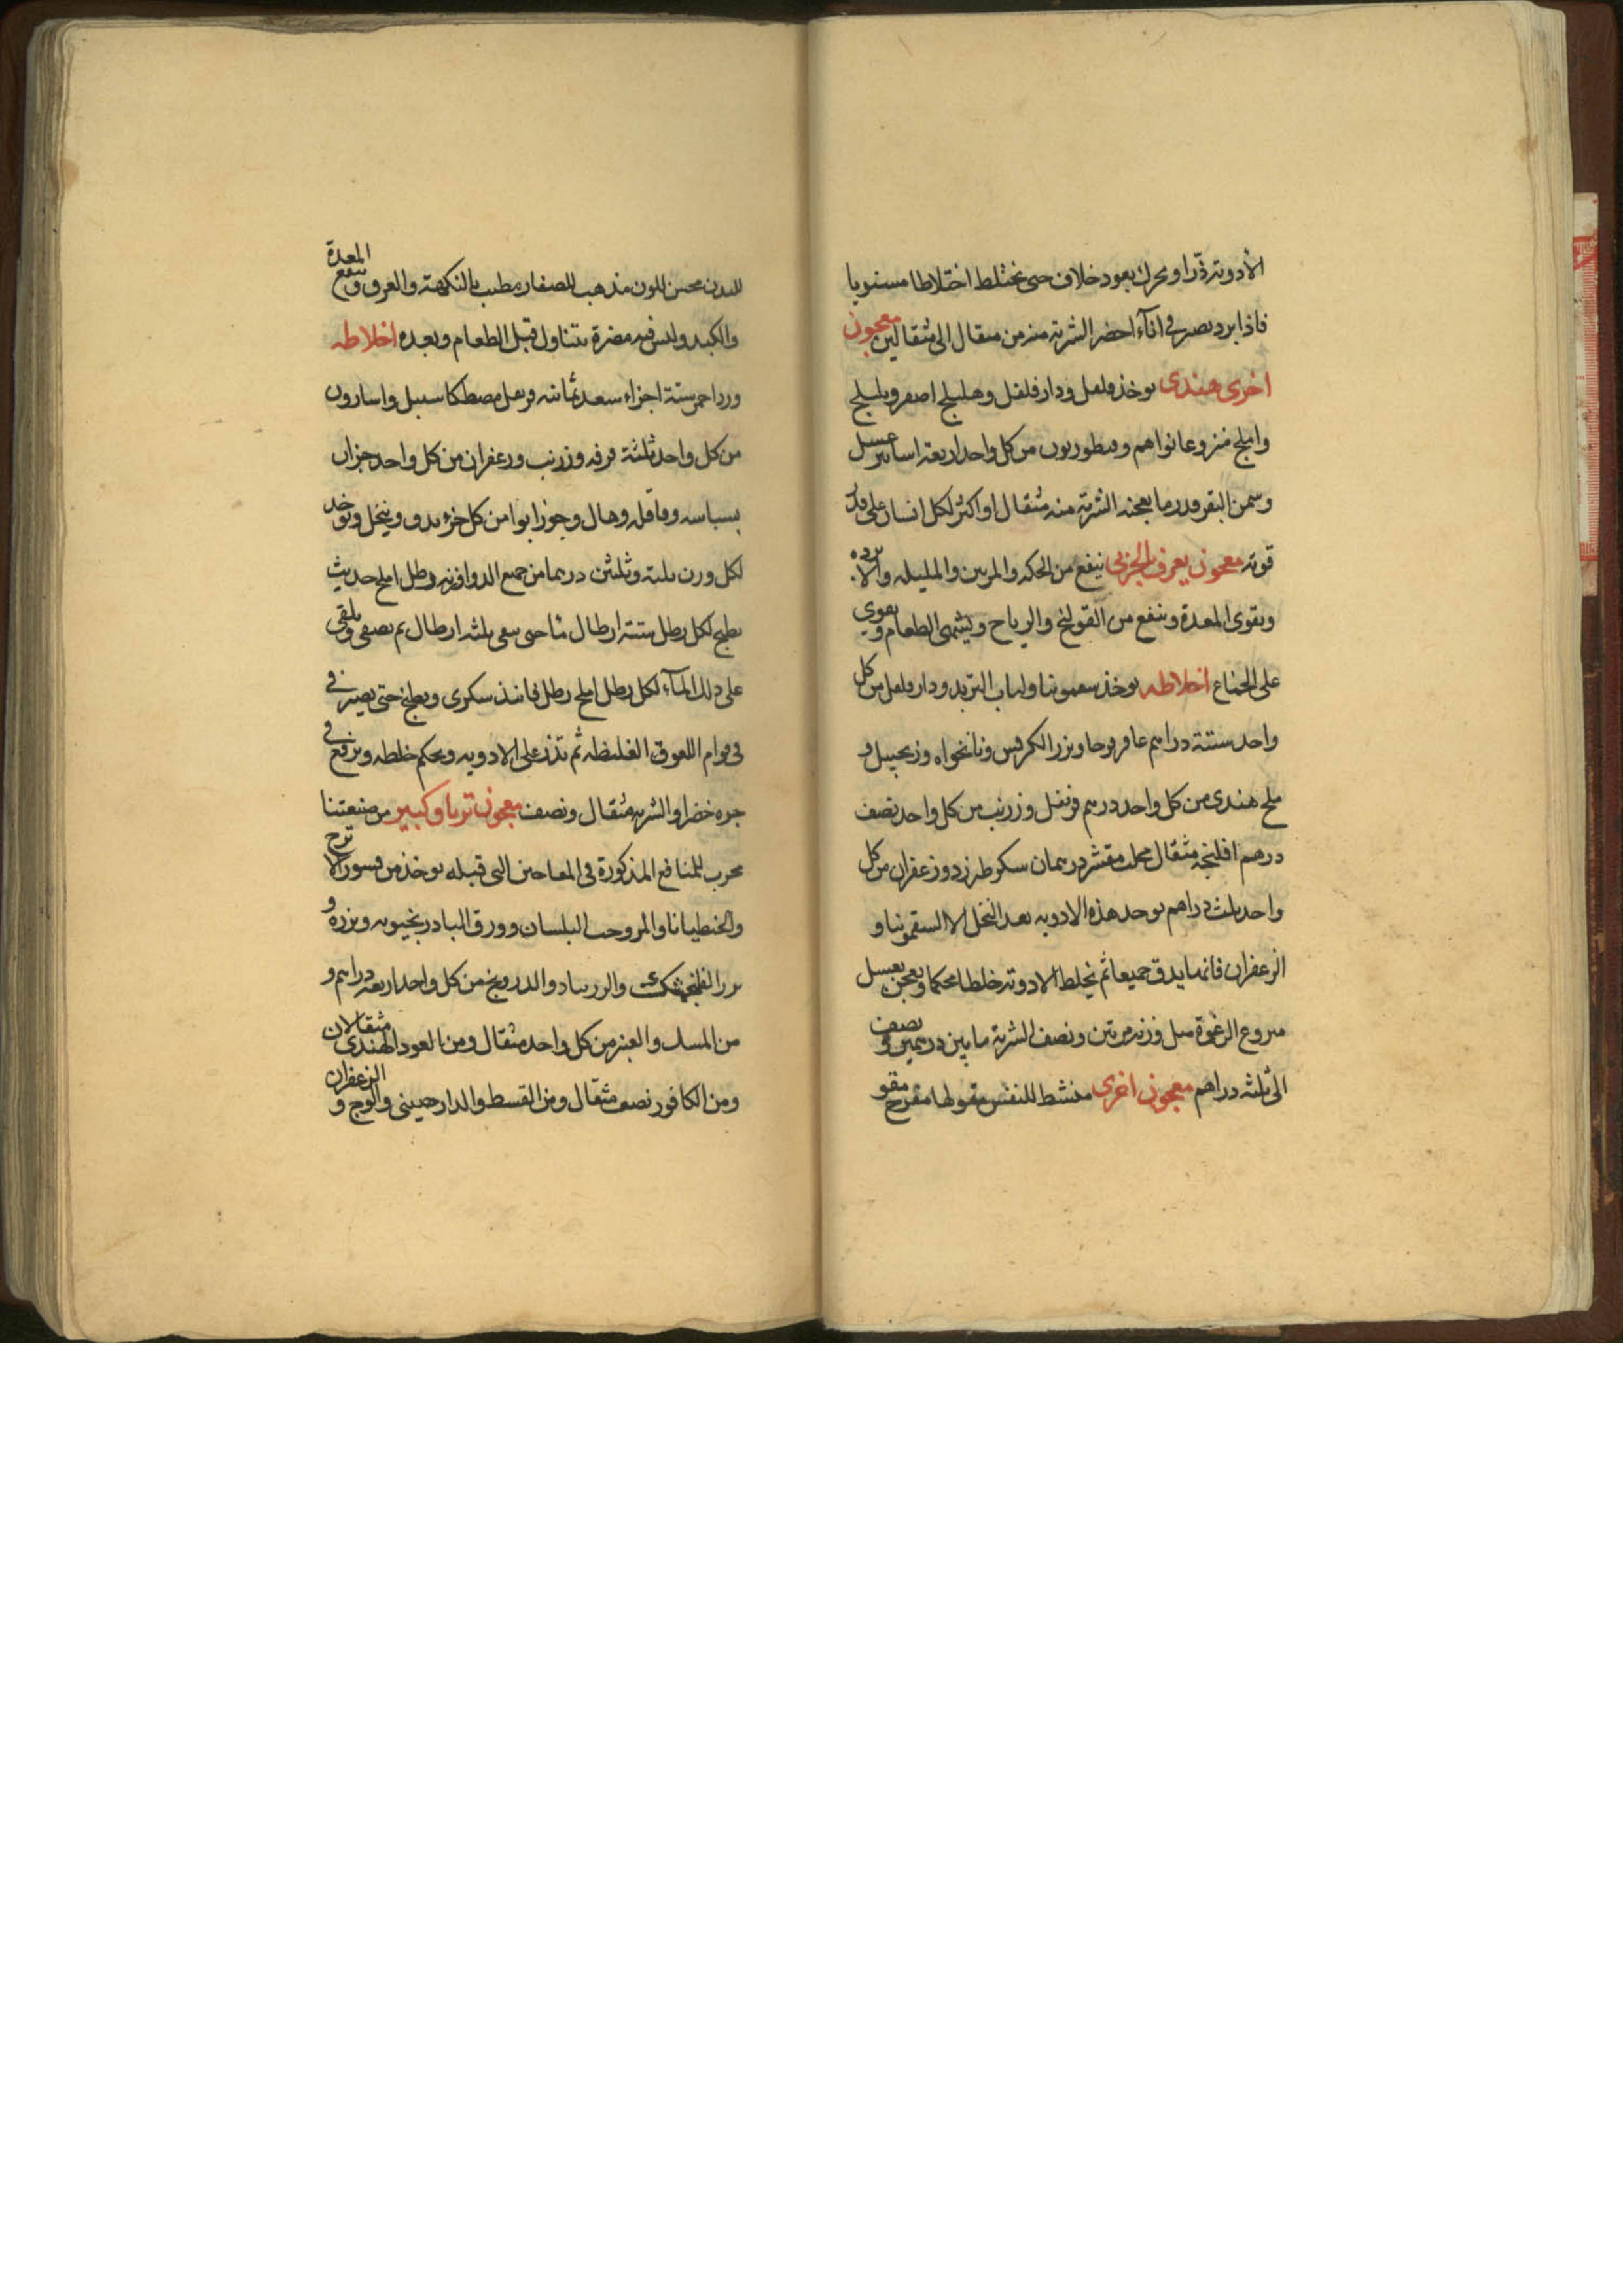 الأدوية ذرا ويحرك بعود خلاف حتى تختلط اختلاطا مستويا
فاذا برد يصير في اناء اخضر الشربة منه من مثقال الى مثقالين معجون
اخرى هندى يوخذ فلفل ودار فلفل وهليلج اصفر وبليلج
واملج منزوعا نواهم وقنطوريون من كل واحد اربعة اساتير عسل
وسمن البقر قدر ما يعجنه الشربة منه مثقال او اكثر لكل انسان على قدر
قوته معجون يعرف بالجزى ينفع من الحكه والمرتين والمليله والابرده
ويقوى المعدة وينفع من القولنج والرياح ويشهى الطعام ويقوى
على الجماع اخلاطه يوخذ سقمونيا ولباب التربد ودار فلفل من كل
واحد ستة دراهم عاقرقرحا وبزر الكرفس ونانخواه وزنجبيل و
ملح هندى من كل واحد درهم قرنفل وزرنب من كل واحد نصف
درهم افلنجه مثقال محلب مقشر درهمان سكر طبرزد وزعفران من كل
واحد ثلث دراهم يوخذ هذه الادويه بعد النخل الا السقمونيا و
الزعفران فانهما يدق جميعا ثم يخلط الادوية خلطا محكما ويعجن بعسل
منزوع الرغوة مثل وزنه مرتين ونصف الشربة ما بين درهمين ونصف
الى ثلثه دراهم معجون اخرى منشط للنفس مقو لها مفرح مقو
للبدن محسن اللون مذهب للصفار مطيب بالنكهته والعرق وينفع المعدة
والكبد وليس فيه مضرة يتناول قبل الطعام وبعده اخلاطه
ورد احمر ستة اجزاء سعد ثمانيه قرنفل مصطكا سنبل واسارون
من كل واحد ثلثة قرفه وزرنب وزعفران من كل واحد جزان
بسباسه وقاقله وهال وجوزابوا من كل جزء يدق وينخل ويوخذ
لكل وزن ثلثة وثلثين درهما من جميع الدوا وزنه رطل املج حديث
يطبخ لكل رطل ستة ارطال ما حتى يبقى ثلثه ارطال ثم يصفى ويلقى
على ذلك الماء لكل رطل املج رطل فانيذ سكرى ويطبخ حتى يصير في
فى قوام اللعوق الغليظه ثم تذر على الادويه ويحكم خلطه ويرفع في
جره خضرا والشربه مثقال ونصف معجون ترياق كبير من صنعتنا
مجرب للمنافع المذكورة فى المعاجين التى قبله يوخذ من قشور الاترج
والجنطيانا والمر وحب البلسان وورق البادرنجبويه وبزره و
بزر الفلنجمشك والزرنباد والدرونج من كل واحد اربعة دراهم و
من المسك والعنبر من كل واحد مثقال ومن العود الهندى مثقالان
ومن الكافور نصف مثقال ومن القسط والدارصينى والوج و الزعفران